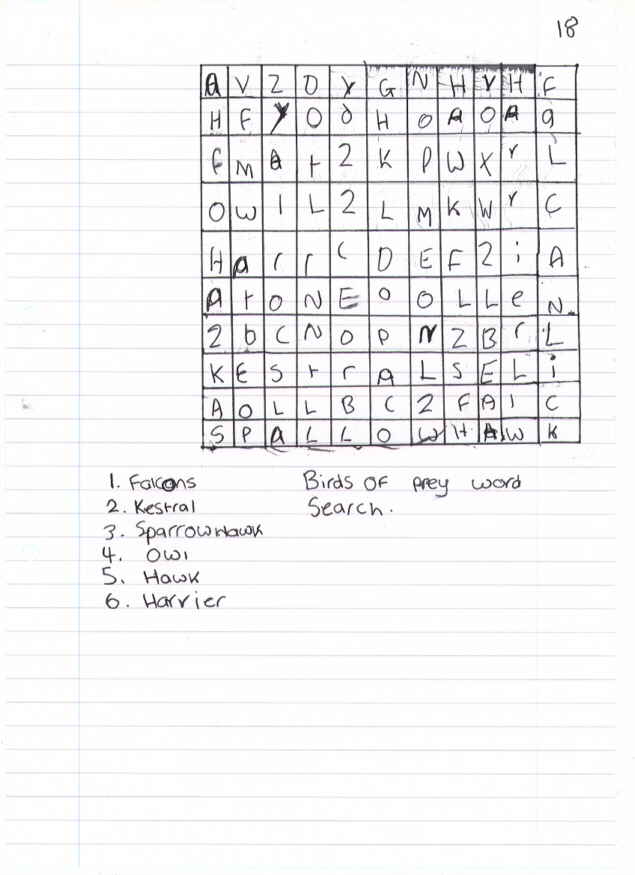 18
A V Z O Y G N H Y H F
H F Y O d H O A O A a
F M a t 2 K P W X r L
O W I L 2 L M K W r C
H a r r C D E F 2 i A
A t O N E O O L L e N
2 b C N O P N Z B r L
K E S t r A L S E L i
A O L L B C 2 F A I C
S P a L L O W H A W K
1. Falcons
2. Kestral
3. SparrowHawk
4. Owl
5. Hawk
6. Harrier
Birds OF prey word
Search.